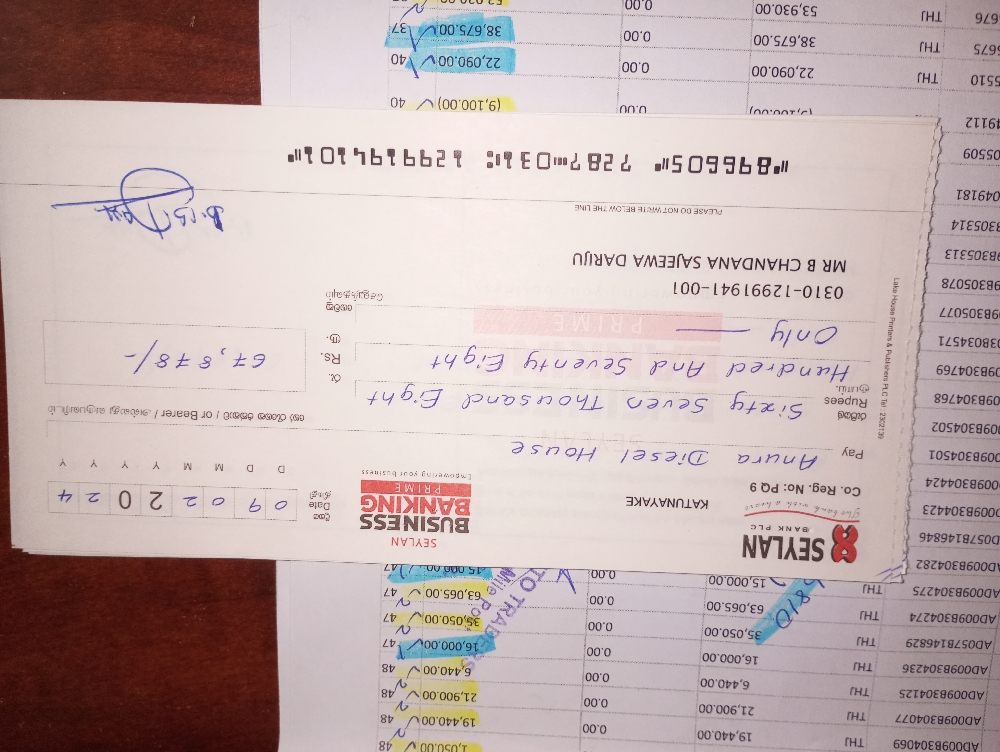 SEYLAN
BANK PLC
The bank with a heart
Co. Reg. No: PQ 9
KATUNAYAKE
SEYLAN
BUSINESS
BANKING
PRIME
Empowering your business
දිනය
Date
திகதி
0 9 0 2 2 0 2 4
D D M M Y Y Y Y
Pay Anura Diesel House
හෝ රැගෙන එන්නාට / or Bearer / அல்லது கொண்டுவருபவரிடம்
රුපියල්
Rupees
ரூபாய்
Sixty Seven Thousand Eight
Hundred And Seventy Eight
Only
රු.
Rs.
ரூ.
67,878/-
0310-12991941-001
MR B CHANDANA SAJEEWA DARIJU
PLEASE DO NOT WRITE BELOW THE LINE
⑈896605⑈ 7287⑉031⑆ 1299194101⑈
Lake House Printers & Publishers PLC Tel: 2302139
AD009B304069 THJ 19,440.00 0.00 1,050.00 48
AD009B304077 THJ 21,900.00 0.00 19,440.00 48
AD009B304125 THJ 6,440.00 0.00 21,900.00 48
AD009B304236 THJ 16,000.00 0.00 6,440.00 48
AD057B146829 THJ 35,050.00 0.00 16,000.00 47
AD009B304274 THJ 63,065.00 0.00 35,050.00 47
AD009B304275 THJ 15,000.00 0.00 63,065.00 47
15,000.00 47
TO TRADERS
Mile Po
5810
D009B304282
D057B146846
09B304423
09B304424
09B304501
09B304502
09B304768
09B304769
09B305077
09B305078
9B305313
B305314
049181
05509
49112
(9,100.00) 0.00 (9,100.00) 40
5510 THJ 22,090.00 0.00 22,090.00 40
5675 THJ 38,675.00 0.00 38,675.00 37
676 THJ 53,930.00 0.00 53,930.00